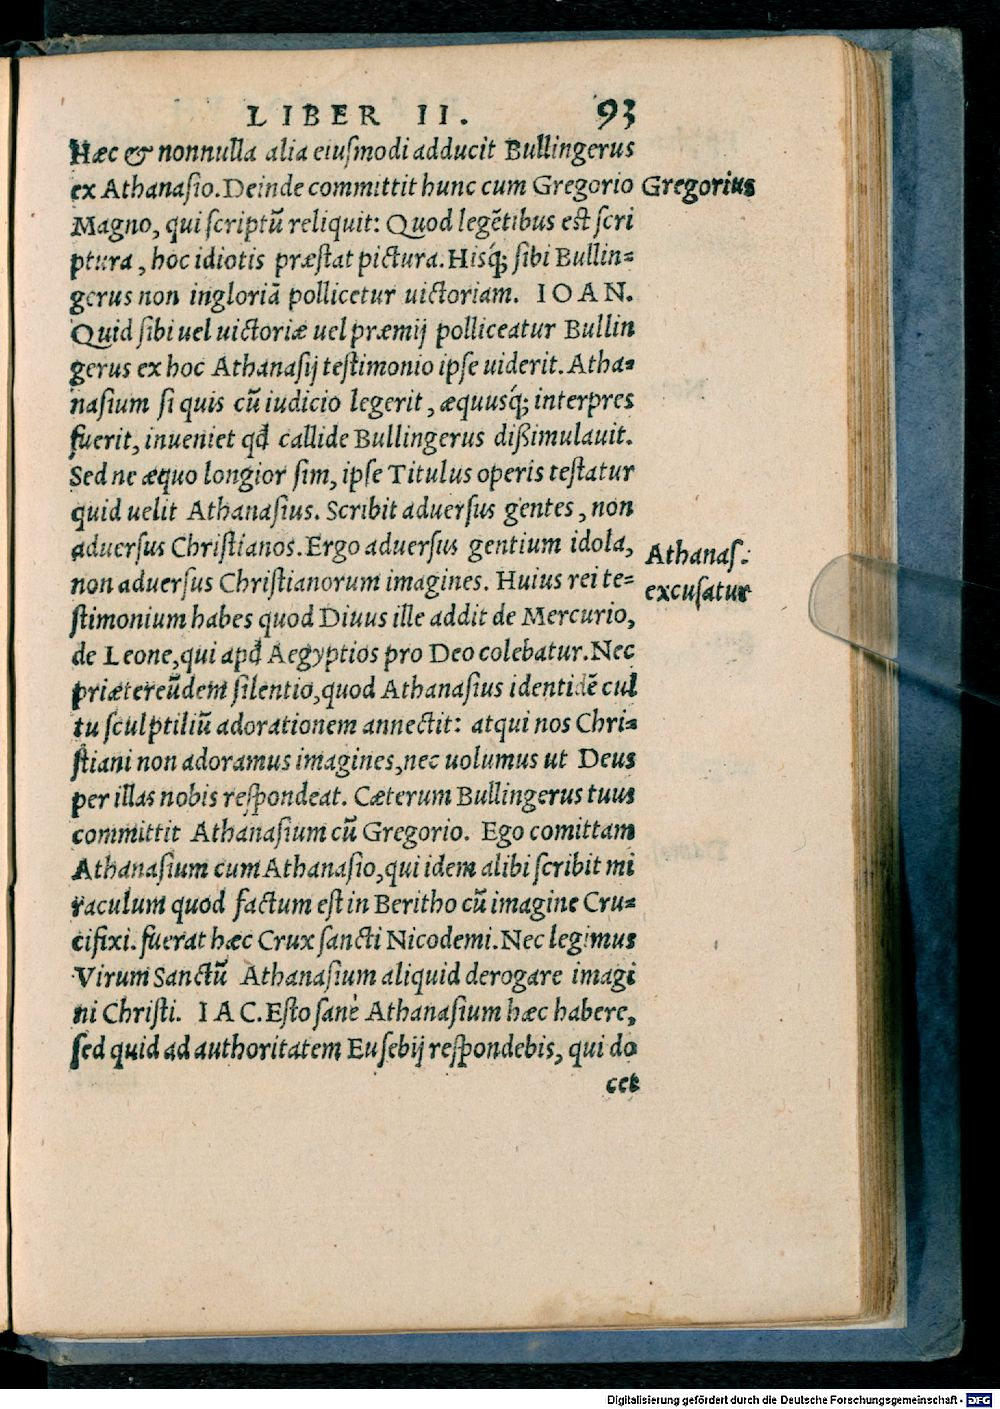 LIBER II. 93
Hæc & nonnulla alia eiuſmodi adducit Bullingerus
ex Athanaſio. Deinde committit hunc cum Gregorio Gregorius
Magno, qui ſcriptũ reliquit: Quod legẽtibus eſt ſcri
ptura, hoc idiotis præſtat pictura. Hisq́; ſibi Bullin=
gerus non ingloriã pollicetur uictoriam. IOAN.
Quid ſibi uel uictoriæ uel præmij polliceatur Bullin
gerus ex hoc Athanaſij teſtimonio ipſe uiderit. Atha=
naſium ſi quis cũ iudicio legerit, æquusq́; interpres
fuerit, inueniet qđ callide Bullingerus dißimulauit.
Sed ne æquo longior ſim, ipſe Titulus operis teſtatur
quid uelit Athanaſius. Scribit aduerſus gentes, non
aduerſus Chriſtianos. Ergo aduerſus gentium idola,
Athanaſ.
non aduerſus Chriſtianorum imagines. Huius rei te=
excuſatur
ſtimonium habes quod Diuus ille addit de Mercurio,
de Leone, qui apđ Aegyptios pro Deo colebatur. Nec
priætereũdem ſilentio, quod Athanaſius identidẽ cul
tu ſculptiliũ adorationem annectit: atqui nos Chri=
ſtiani non adoramus imagines, nec uolumus ut Deus
per illas nobis reſpondeat. Cæterum Bullingerus tuus
committit Athanaſium cũ Gregorio. Ego comittam
Athanaſium cum Athanaſio, qui idem alibi ſcribit mi
raculum quod factum eſt in Beritho cũ imagine Cru=
cifixi. fuerat hæc Crux ſancti Nicodemi. Nec legimus
Virum Sanctũ Athanaſium aliquid derogare imagi
ni Chriſti. IAC. Eſto ſanè Athanaſium hæc habere,
ſed quid ad authoritatem Euſebij reſpondebis, qui do
cet
Digitalisierung gefördert durch die Deutsche Forschungsgemeinschaft - DFG